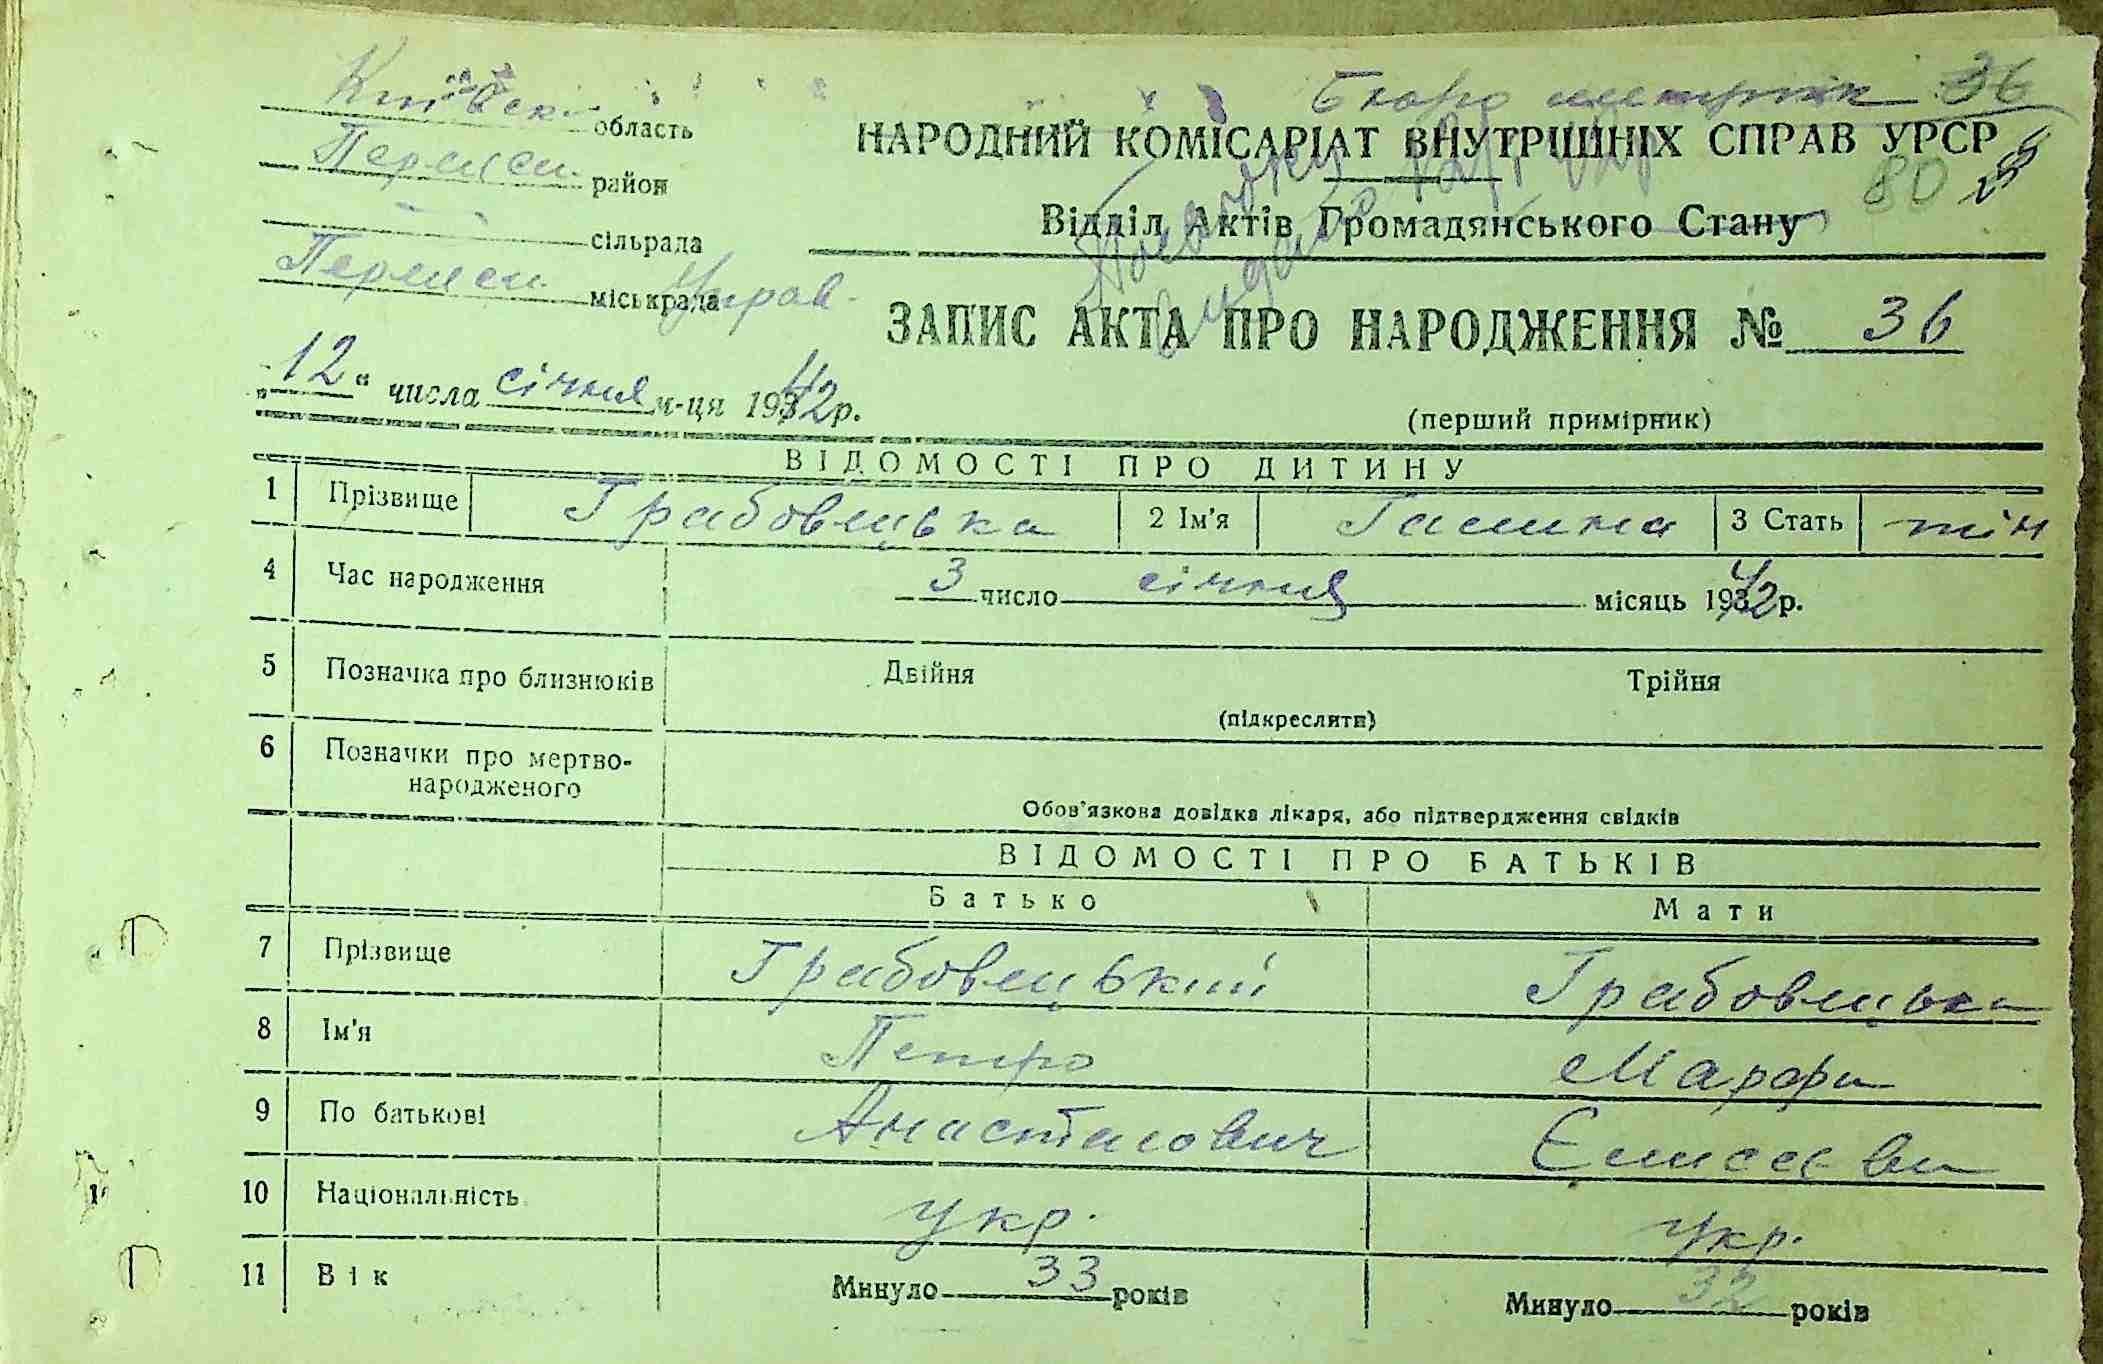 Київськ область
Бюро метрик 36
НАРОДНИЙ КОМІСАРІАТ ВНУТРІШНІХ СПРАВ УРСР
район
80
Відділ Актів Громадянського Стану
сільрада
міськрада Управ.
ЗАПИС АКТА ПРО НАРОДЖЕННЯ № 36
„12“ числа січня м-ця 1942 р.
(перший примірник)
ВІДОМОСТІ ПРО ДИТИНУ
1 Прізвище Грабовецька 2 Ім'я Галина 3 Стать жін
4 Час народження 3 число січня місяць 1942 р.
5 Позначка про близнюків Двійня Трійня
(підкреслити)
6 Позначки про мертво-
народженого
Обов'язкова довідка лікаря, або підтвердження свідків
ВІДОМОСТІ ПРО БАТЬКІВ
Батько Мати
7 Прізвище Грабовецький Грабовецька
8 Ім'я Петро Марфа
9 По батькові Анастасович Єлисеєвна
10 Національність укр. укр.
11 Вік Минуло 33 років Минуло 32 років